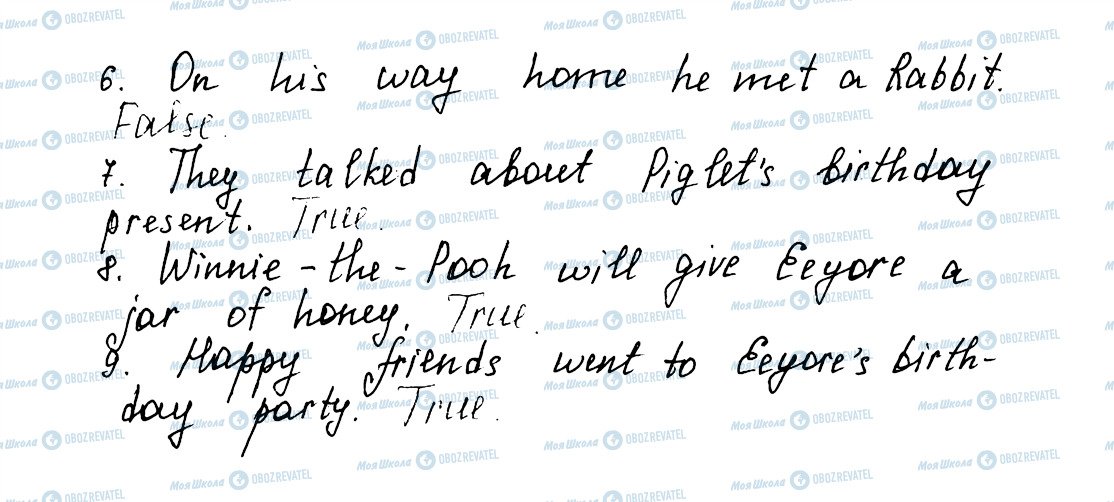 6. On his way home he met a Rabbit.
False.
7. They talked about Piglet's birthday
present. True.
8. Winnie-the-Pooh will give Eeyore a
jar of honey. True.
9. Happy friends went to Eeyore's birth-
day party. True.